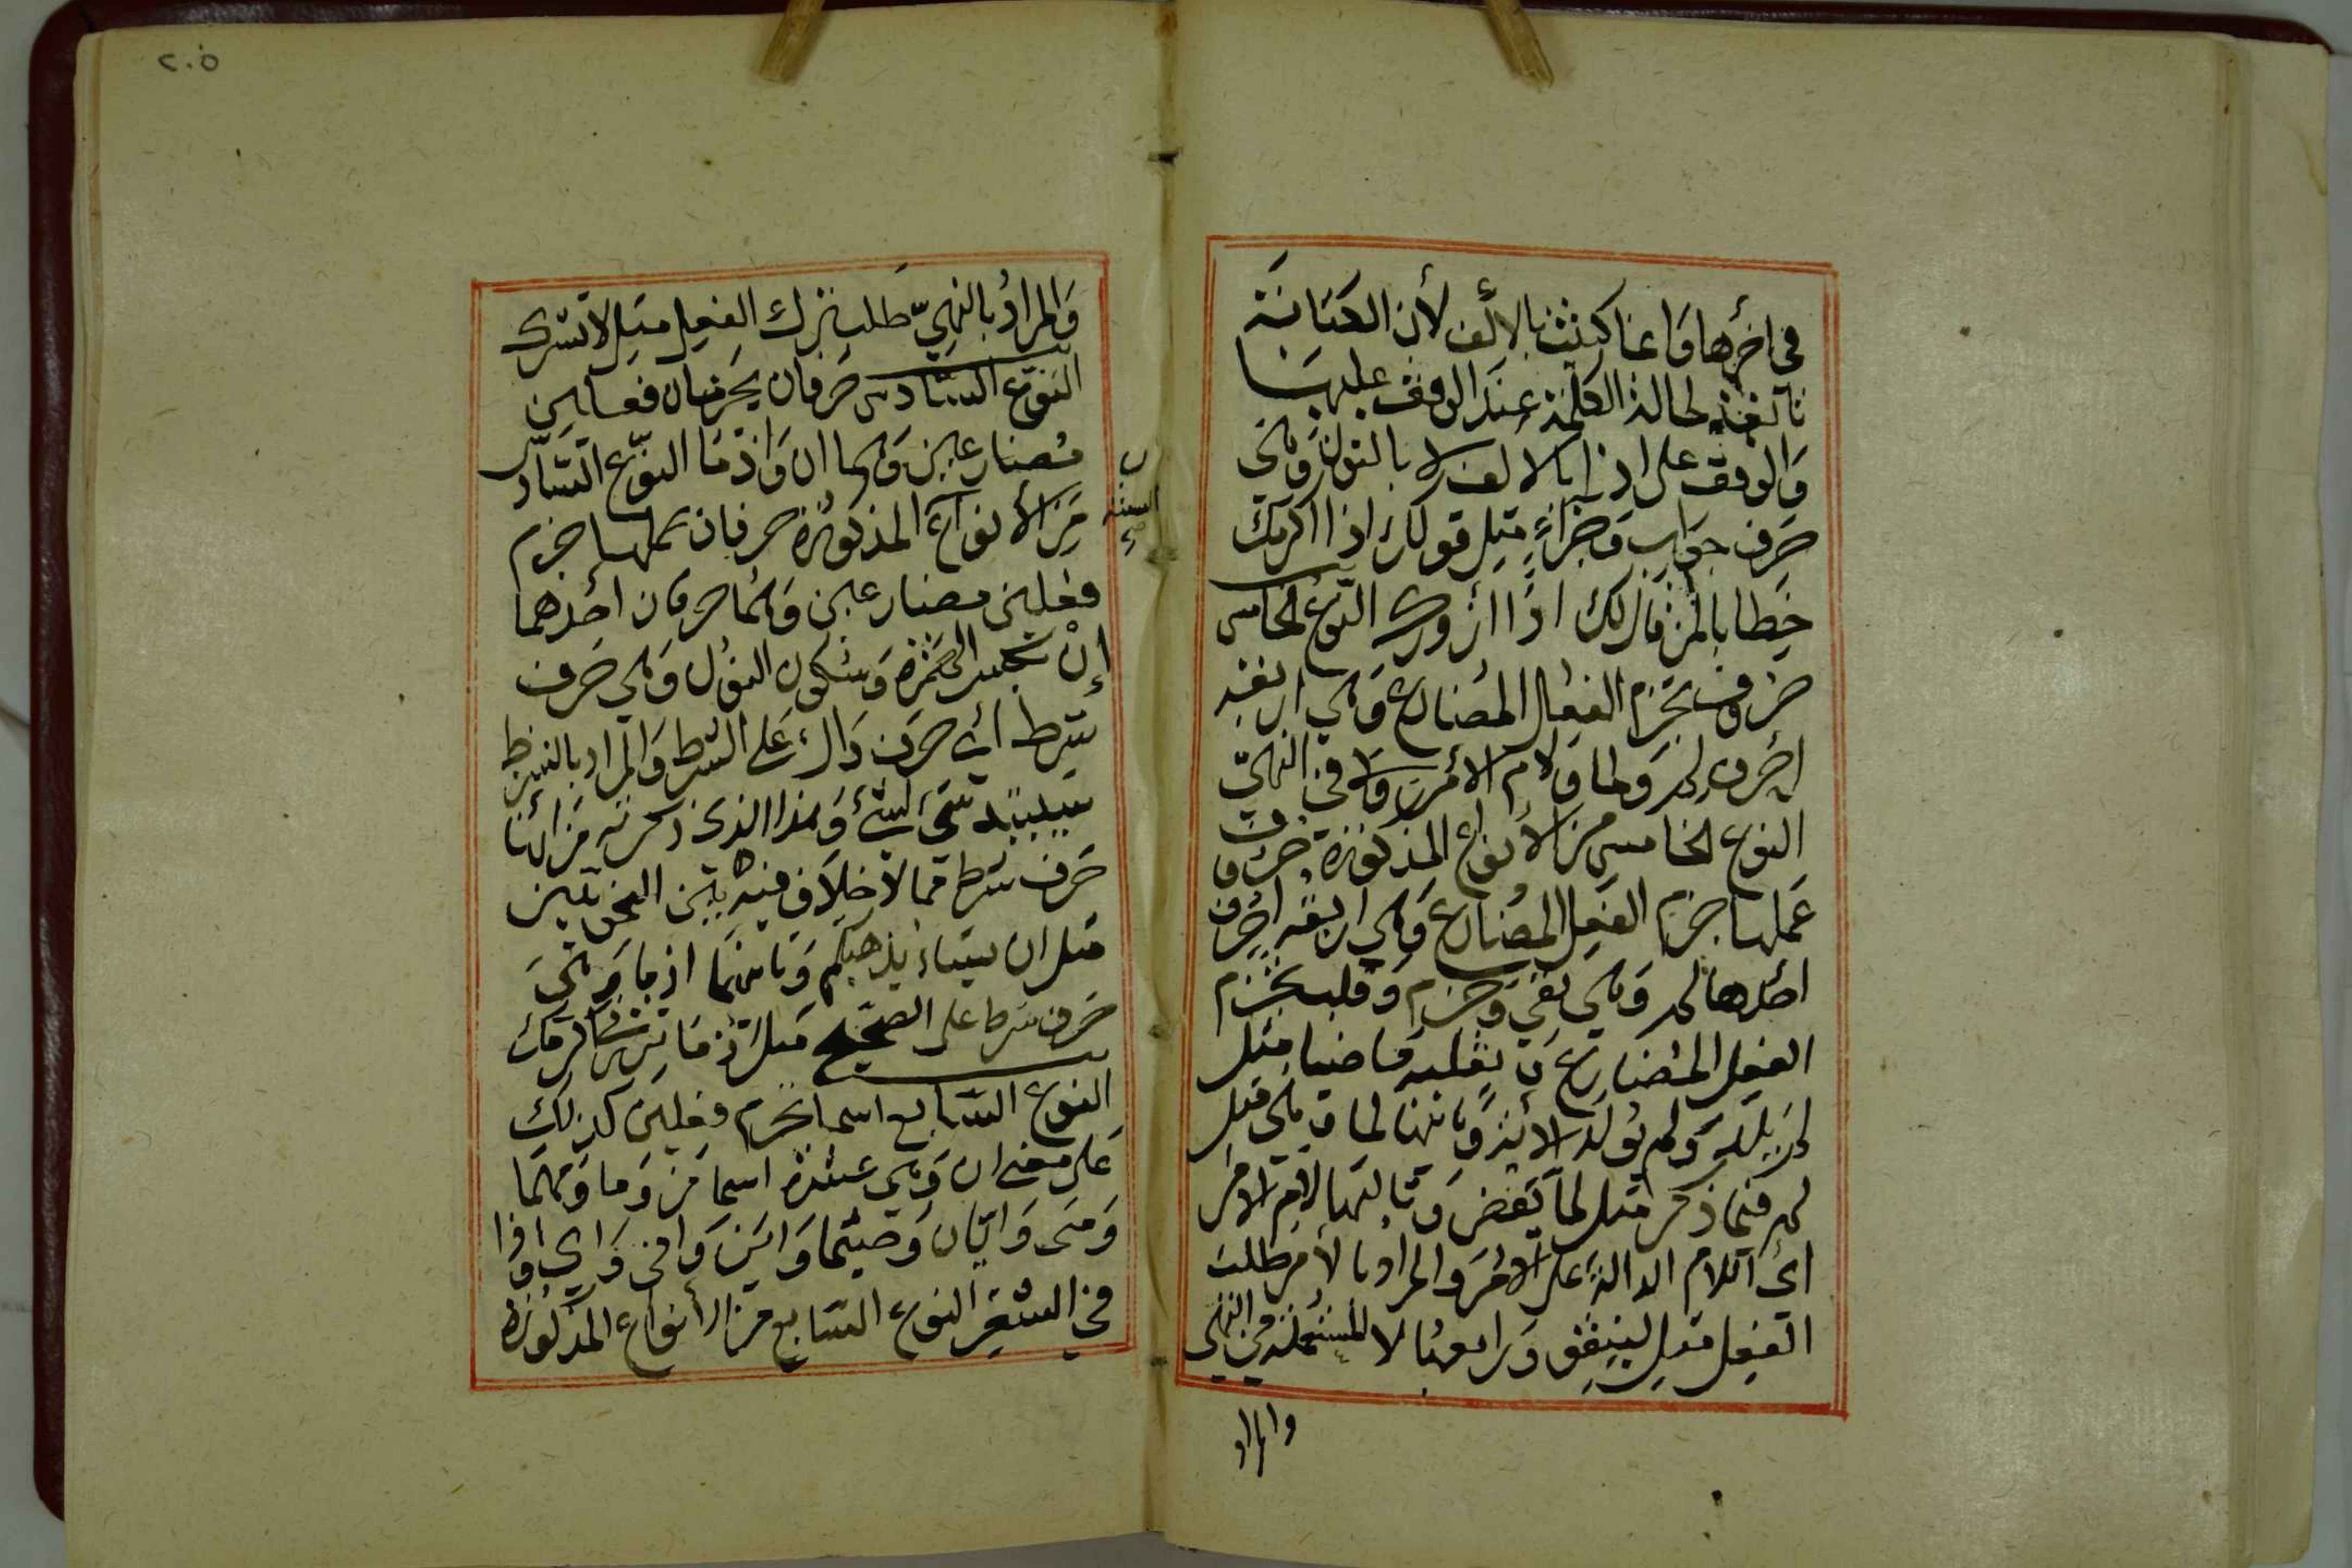 في اخرها وانما كتبت بالالف لأن الكتابة
تابعة لحالة الكلمة عند الوقف عليها
والوقف على اذا بالالف لا بالنون وهي
حرف جواب وجزاء مثل قولك اذا اكرمك
خطابا لمن قال لك اذًا أزورك النوع الخامس
حروف تجزم الفعل المضارع وهي اربعة
احرف لم ولما ولام الأمر ولا في النهيّ
النوع الخامس من الأنواع المذكورة حروف
عملها جزم الفعل المضارع وهي اربعة احرف
احدها لم وهي نفي وجزم وقلب تجزم
الفعل المضارع وتقلبه ماضيا مثل
لم يلد ولم يولد الآية وثانيها لما وهي مثل
لم فيما ذكر مثل لما يقض وثالثها لام الامر
اي اللام الدالة على الأمر والمراد بالأمر طلب
الفعل مثل لينفق ورابعها لا المستعملة في النهي
والمراد
٢٠٥
والمراد بالنهيّ طلب ترك الفعل مثل لا تشرك
النوع السادس حرفان يجزمان فعلين
مضارعين وهما ان واذما النوّع السّادس
من الأنواع المذكورة حرفان عملها جزم
فعلين مضارعين وهما حرفان احدهما
إنْ بكسر الهمزة وسكون النون وهي حرف
شرط أي حرف دال على الشرط والمراد بالشرط
شيء لشيء وهذا الذي ذكرته من انها
حرف شرط مما لا خلاف فيه بين النحويين
مثل ان يشاء يذهبكم وثانيهما اذما وهي
حرف شرط على الصحيح مثل اذما تزرني اكرمك
النوع السابع اسما تجزم فعلين كذلك
على معنى ان وهي عشرة اسما من وما ومهما
ومتى وايّان وحيثما واين وانى واي واذا
في الشعر النوع السابع من الأنواع المذكورة